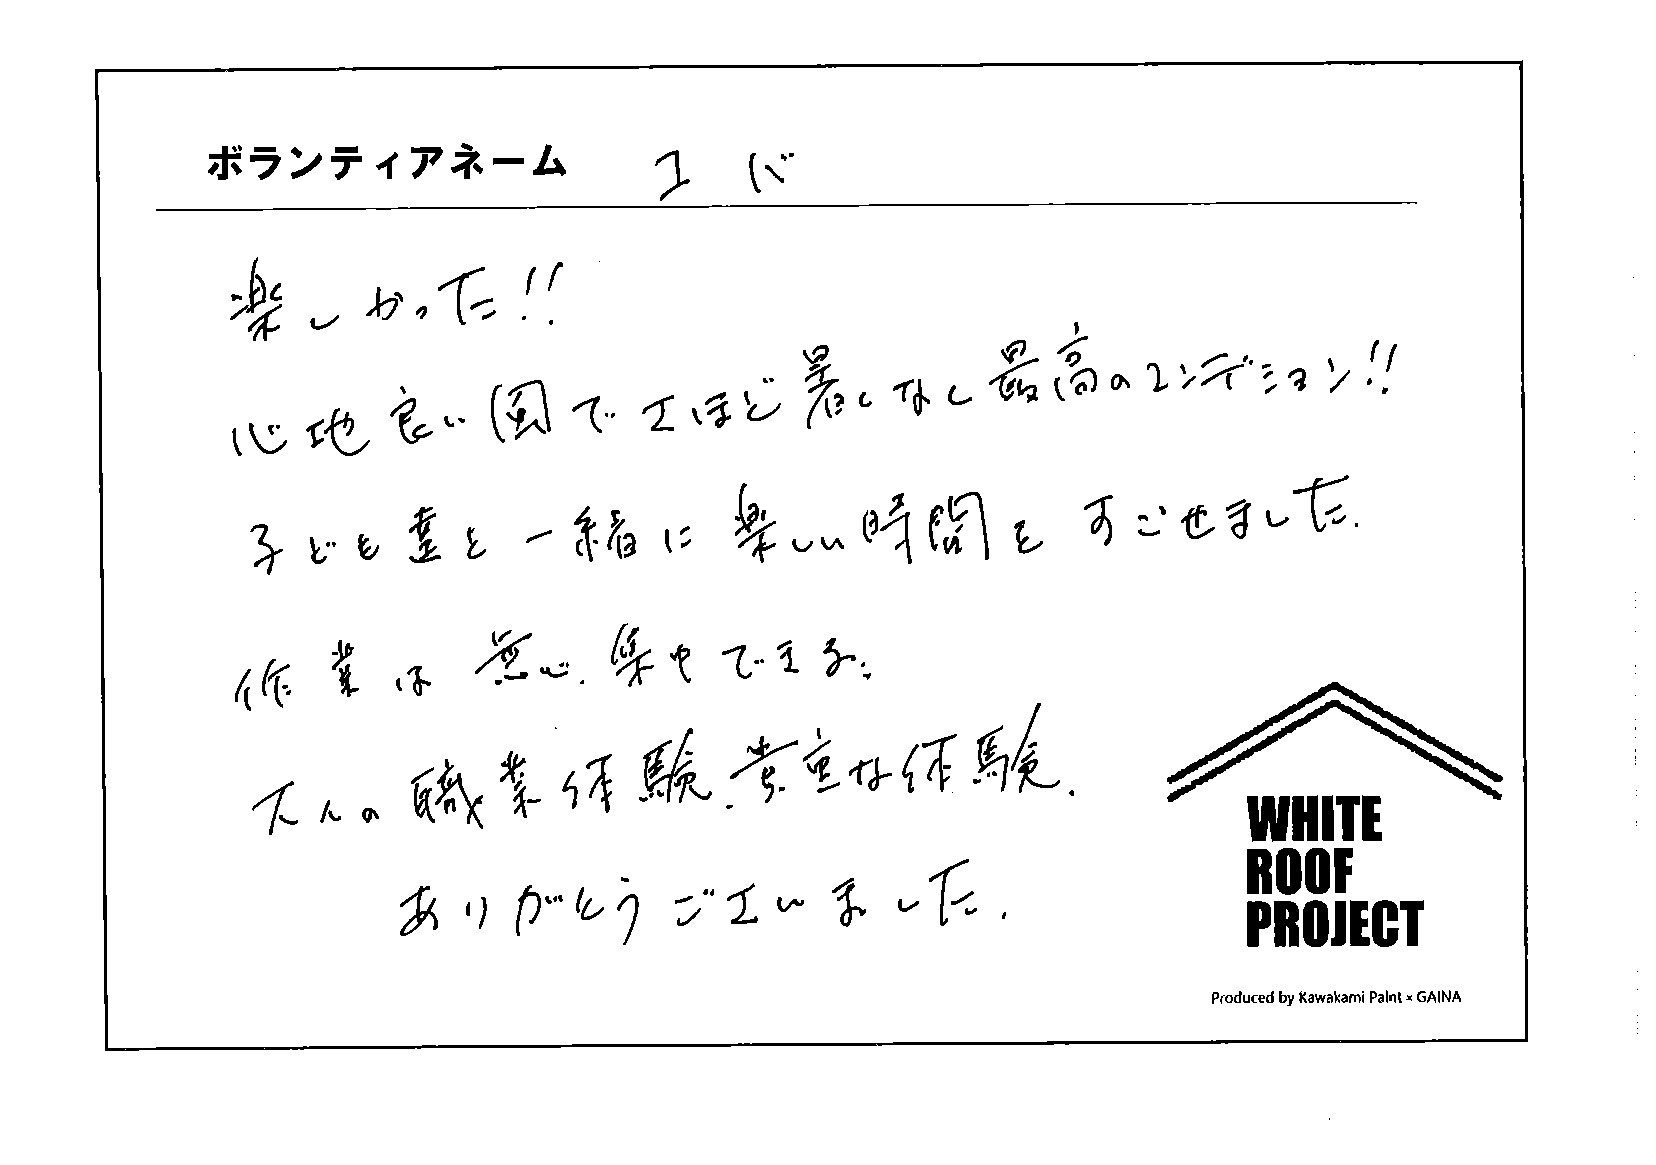 ボランティアネーム コバ
楽しかった!!
心地良い風でさほど暑くなし最高のコンデション!!
子ども達と一緒に楽しい時間をすごせました.
作業は無心.集中できる.
大人の職業体験.貴重な体験.
ありがとうございました.
WHITE
ROOF
PROJECT
Produced by Kawakami Paint × GAINA